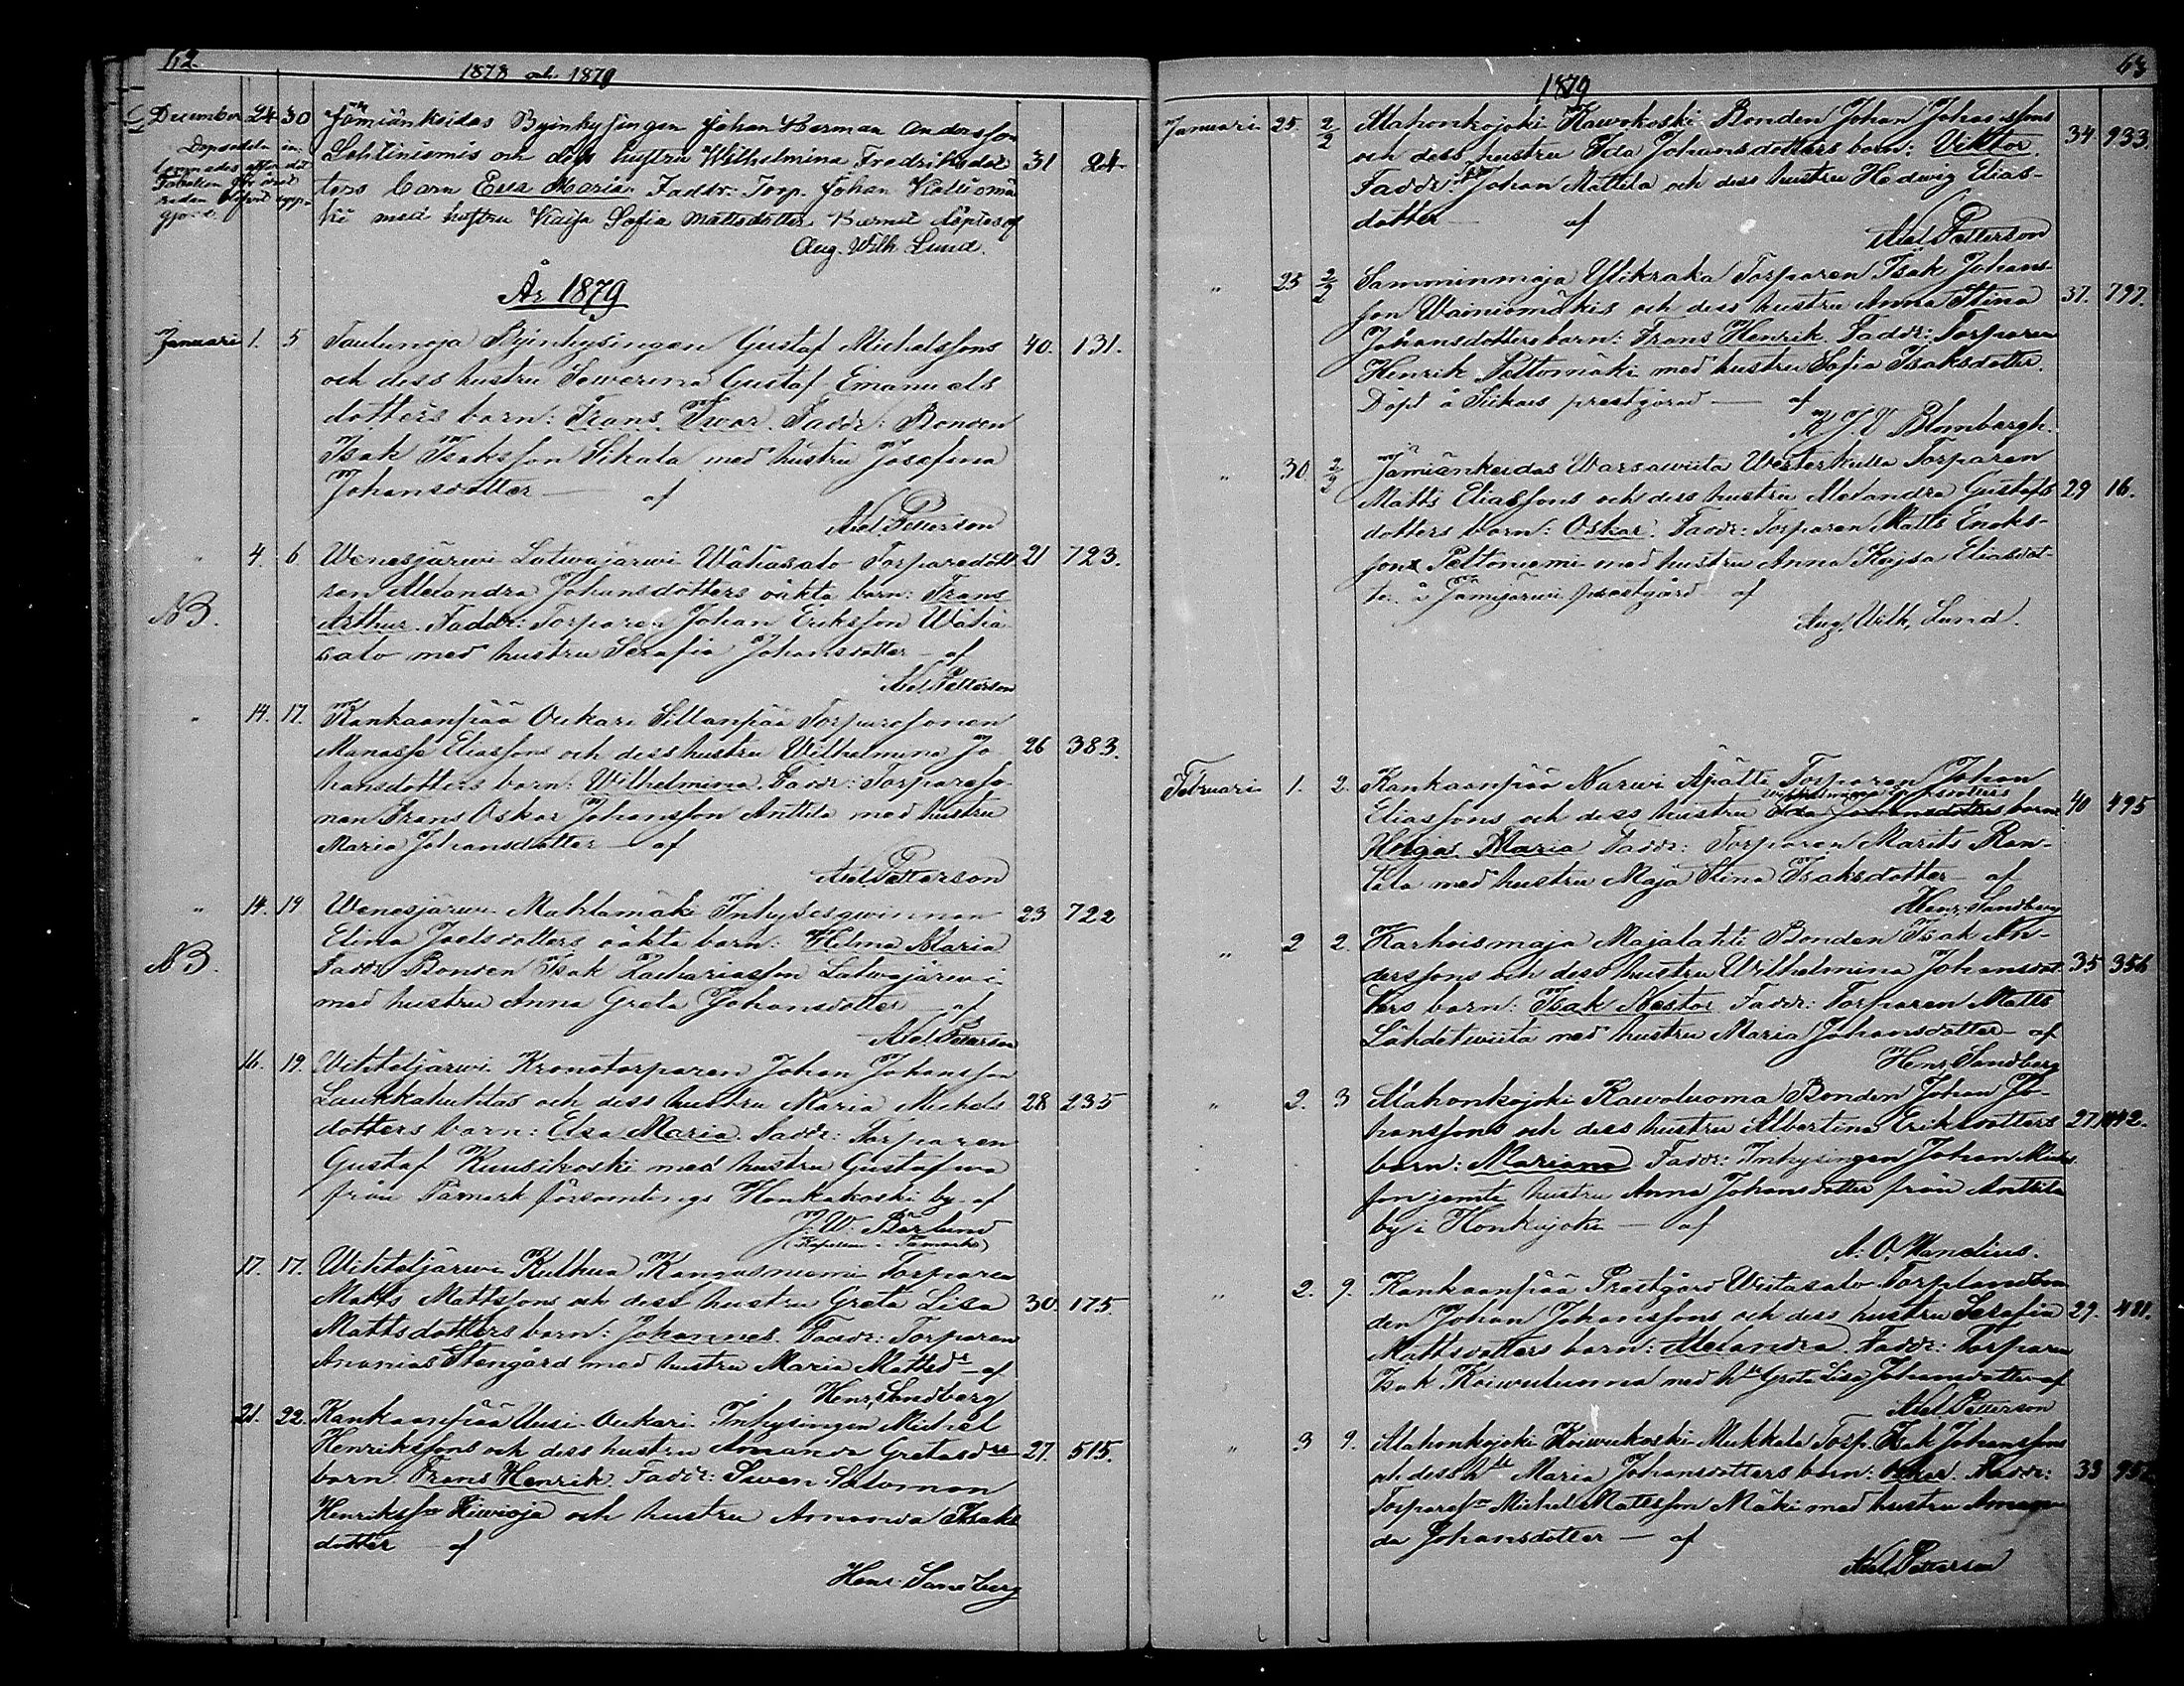 62.
1878 och 1879
December 24 30 Jämiänkeidas Byinhysingen Johan Herman Andersson
Dopsedeln in-
lemnades efter det
Tabellen för året
redan blifvit upp-
gjord.
Lehtiniemis och dess hustru Wilhelmina Fredriksdot 31 24
ters barn Eva Maria. Faddr: Torp. Johan Kalliomä
ki med hustru Kajsa Sofia Mattsdotter. Barnet döptes af
Aug. Wilh. Lund.
År 1879
Januari 1. 5. Byinhysingen Gustaf Michelssons 40. 131.
och dess hustru Sewerina Gustaf Emanuels
dotters barn: Frans Iwar. Faddr: Bonden
Isak Isaksson Sikala med hustru Josefina
Johansdotter — af
Axel Petterson
" 4. 6. Wenesjärwi Latwajärwi Wähäsalo Torparedott 21 723.
ren Alexandra Johansdotters oäkta barn: Frans
NB.
Arthur. Faddr: Torparen Johan Eriksson Wähä
salo med hustru Serafia Johansdotter — af
Axel Petterson
" 14. 17. Kankaanpää Oukari Sillanpää Torparesonen
Manasse Eliassons och dess hustru Wilhelmina Jo 26 383.
hansdotters barn: Wilhelmina. Faddr: Torpareso-
nen Frans Oskar Johansson Anttila med hustru
Maria Johansdotter — af
Axel Petterson
" 14. 19 Wenesjärwi Mahlamäki Inhysesqwinnan 23 722
Elina Joelsdotters oäkta barn: Hilma Maria
NB.
Faddr: Bonden Isak Zachariasson Latwajärwi
med hustru Anna Greta Johansdotter — af
Axel Petterson
16. 19. Wihteljärwi Kronotorparen Johan Johansson
Laukkahuhtas och dess hustru Maria Michels 28 235
dotters barn: Elsa Maria. Faddr: Torparen
Gustaf Kuusikoski med hustru Gustafwa
från Påmark församlings Honkakoski by af
J. W. Bärlund
(Kapellan i Påmark)
17. 17. Wihteljärwi Kulhua Kangasniemi Torparen
Matts Mattssons och dess hustru Greta Lisa 30. 175.
Mattsdotters barn: Johannes. Faddr: Torparen
Ananias Stengård med hustru Maria Mattsdr — af
Henr. Sandberg
21. 22. Kankaanpää Uusi-Oukari Inhysingen Michel
Henrikssons och dess hustru Amanda 27. 515.
barn: Frans Henrik. Faddr: Salomon
Henriksson Kiwioja och hustru Amanda Isaks
dotter — af
Henr. Sandberg
63
1879
Januari 25. 2/2 Honkajoki Bonden Johan Johanssons 34 933.
och dess hustru Ida Johansdotters barn: Viktor.
Faddr: Johan Mattila och dess hustru Hedwig Elias-
dotter — af
Axel Petterson
" 25 2/2 Samminmaja Ylikraka Torparen Isak Johans-
son Wainiomäkis och dess hustru Anna Stina 37. 797.
Johansdotters barn: Frans Henrik. Faddr: Torparen
Henrik Peltomäki med hustru Sofia Isaksdotter.
Döpt å Siikais prestgård — af
K J V Blombergh.
" 30 2/2 Jämiänkeidas Warsawiita Westerkulla Torparen
Matts Eliassons och dess hustru Alexandra Gustafs 29 16.
dotters barn: Oskar. Faddr: Torparen Matts Enoks-
son Peltoniemi med hustru Anna Kajsa Eliasdot-
ter å Jämijärwi prestgård af
Aug. Wilh. Lund.
Februari 1. 2. Kankaanpää Narwi Ajätti Torparen Johan
Eliassons och dess hustru Ida Johansdotters barn: 40 495
Helga Maria Faddr: Torparen Marits Ran-
tala med hustru Maja Stina Isaksdotter — af
Henr. Sandberg
" 2 2. Karhoismaja Majalahti Bonden Isak An-
derssons och dess hustru Wilhelmina Johansdot 35 356
ters barn: Isak Nestor. Faddr: Torparen Matts
Lähdetwiita med hustru Maria Johansdotter — af
Henr. Sandberg
" 2. 3 Honkajoki Bonden Johan Jo-
hanssons och dess hustru Albertina Eriksdotters 27
barn: Mariana. Faddr: Inhysingen Johan Michels
son jemte hustru Anna Johansdotter från Anttila
by i Honkajoki — af
A. O. Wandius.
" 2. 9. Kankaanpää Prestgård Wiitasalo Torplandbon-
den Johan Johanssons och dess hustru Serafia 29. 491.
Mattsdotters barn: Alexandra. Faddr: Torparen
Isak Koiwuluoma med hu Greta Lisa Johansdotter — af
Axel Petterson
" 3 9. Honkajoki Koiwukoski Mukkala Torp. Isak Johanssons
och dess hu Maria Johansdotters barn: Oskar. Faddr: 33 957
Michel Mattsson Mäki med hustru Aman-
da Johansdotter — af
Axel Petterson